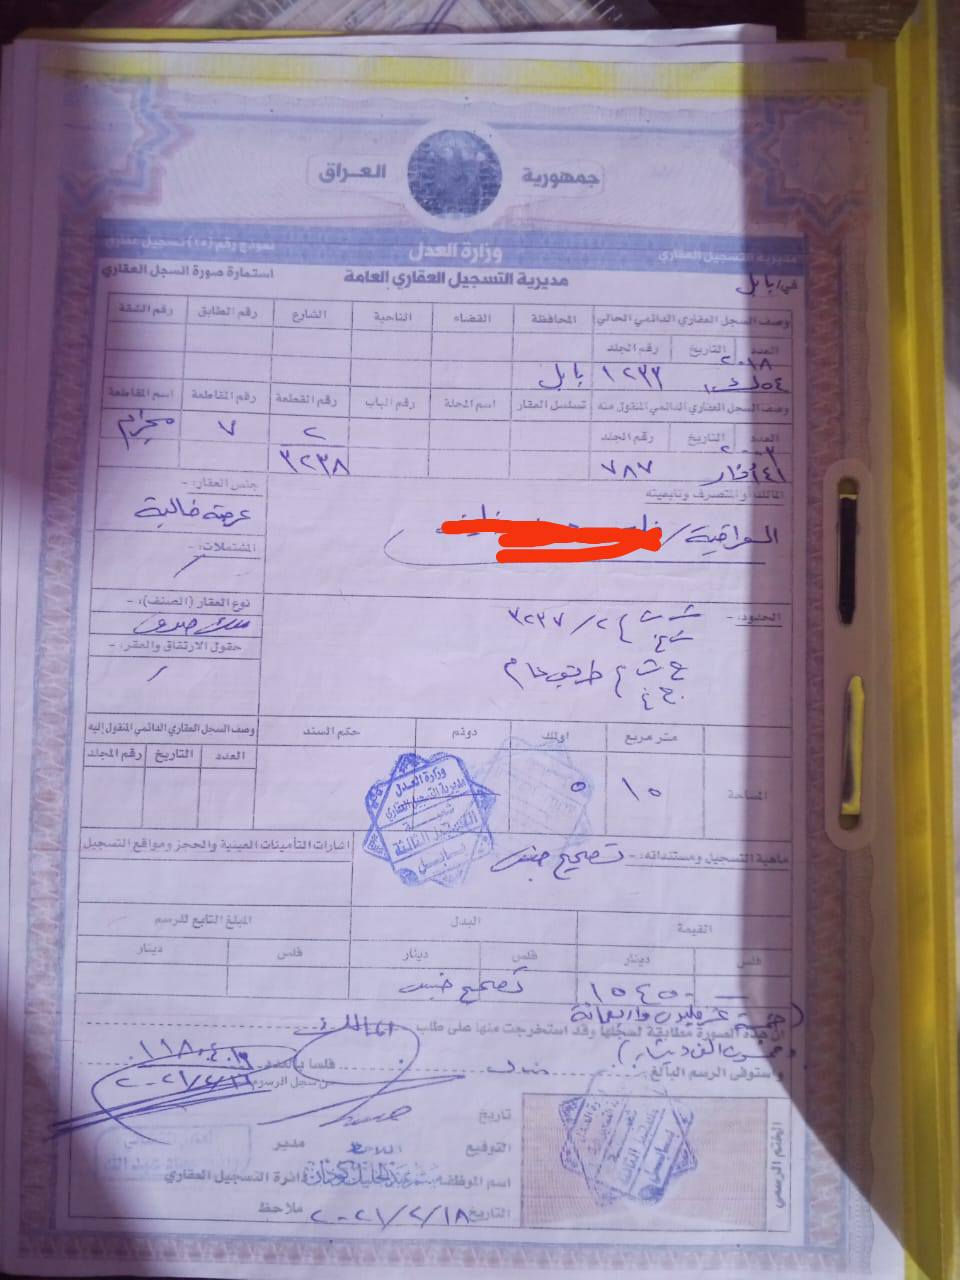 جمهورية العراق
وزارة العدل
مديرية التسجيل العقاري
نموذج رقم (١٥) تسجيل عقاري
مديرية التسجيل العقاري العامة
في/ بابل
استمارة صورة السجل العقاري
وصف السجل العقاري الدائمي الحالي المحافظة القضاء الناحية الشارع رقم الطابق رقم الشقة
العدد التاريخ رقم الجلد
٢٠١٨
٥٤ ١٢٣٣ بابل
وصف السجل العقاري الدائمي المنقول منه تسلسل العقار اسم المحلة رقم الباب رقم القطعة رقم المقاطعة اسم المقاطعة
العدد التاريخ رقم الجلد
٢٠٠٣ ٢ ٧
آذار ٧٨٧ ٣٢٣٨
المالك أو المتصرف وتابعيته
جنس العقار: -
عرصة خالية
العراقية /
المشتملات: -
/
الحدود: -
٢/٣٢٣٧
طريق عام
نوع العقار (الصنف): -
ملك صرف
حقوق الارتفاق والعقر: -
/
متر مربع اولك دونم حكم السند وصف السجل العقاري الدائمي المنقول إليه
العدد التاريخ رقم المجلد
المساحة ١٠ ٥
وزارة العدل
مديرية التسجيل العقاري
شعبة
التسجيل الثالثة
بابل
ماهية التسجيل ومستنداته: - تصحيح جنس
اشارات التأمينات العينية والحجز ومواقع التسجيل
القيمة البدل المبلغ التابع للرسم
فلس دينار فلس دينار فلس دينار
— ١٥٤٥٠٠٠٠ تصحيح جنس
ان هذه الصورة مطابقة لسجلها وقد استخرجت منها على طلب المالك
واستوفى الرسم البالغ فلسا بالعدد
من سجل الرسوم
تاريخ
التوقيع
مدير
اسم الموظف
دائرة التسجيل العقاري
التاريخ ٢٠٢١/٢/١٨
ملاحظ
الختم الرسمي